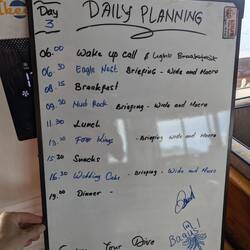 Day 3
DAILY PLANNING
06.00 Wake up call & Light Breakfast
06.30 Eagle Nest Briefing - Wide and Macro
08.15 Breakfast
09.30 Nudi Rock Briefing - Wide and Macro
11.30 Lunch
13.30 Four Kings - Briefing - Wide and Macro
15.30 Snacks
16.30 Wedding Cake - Briefing - Wide and Macro
19.00 Dinner -
Your Dive